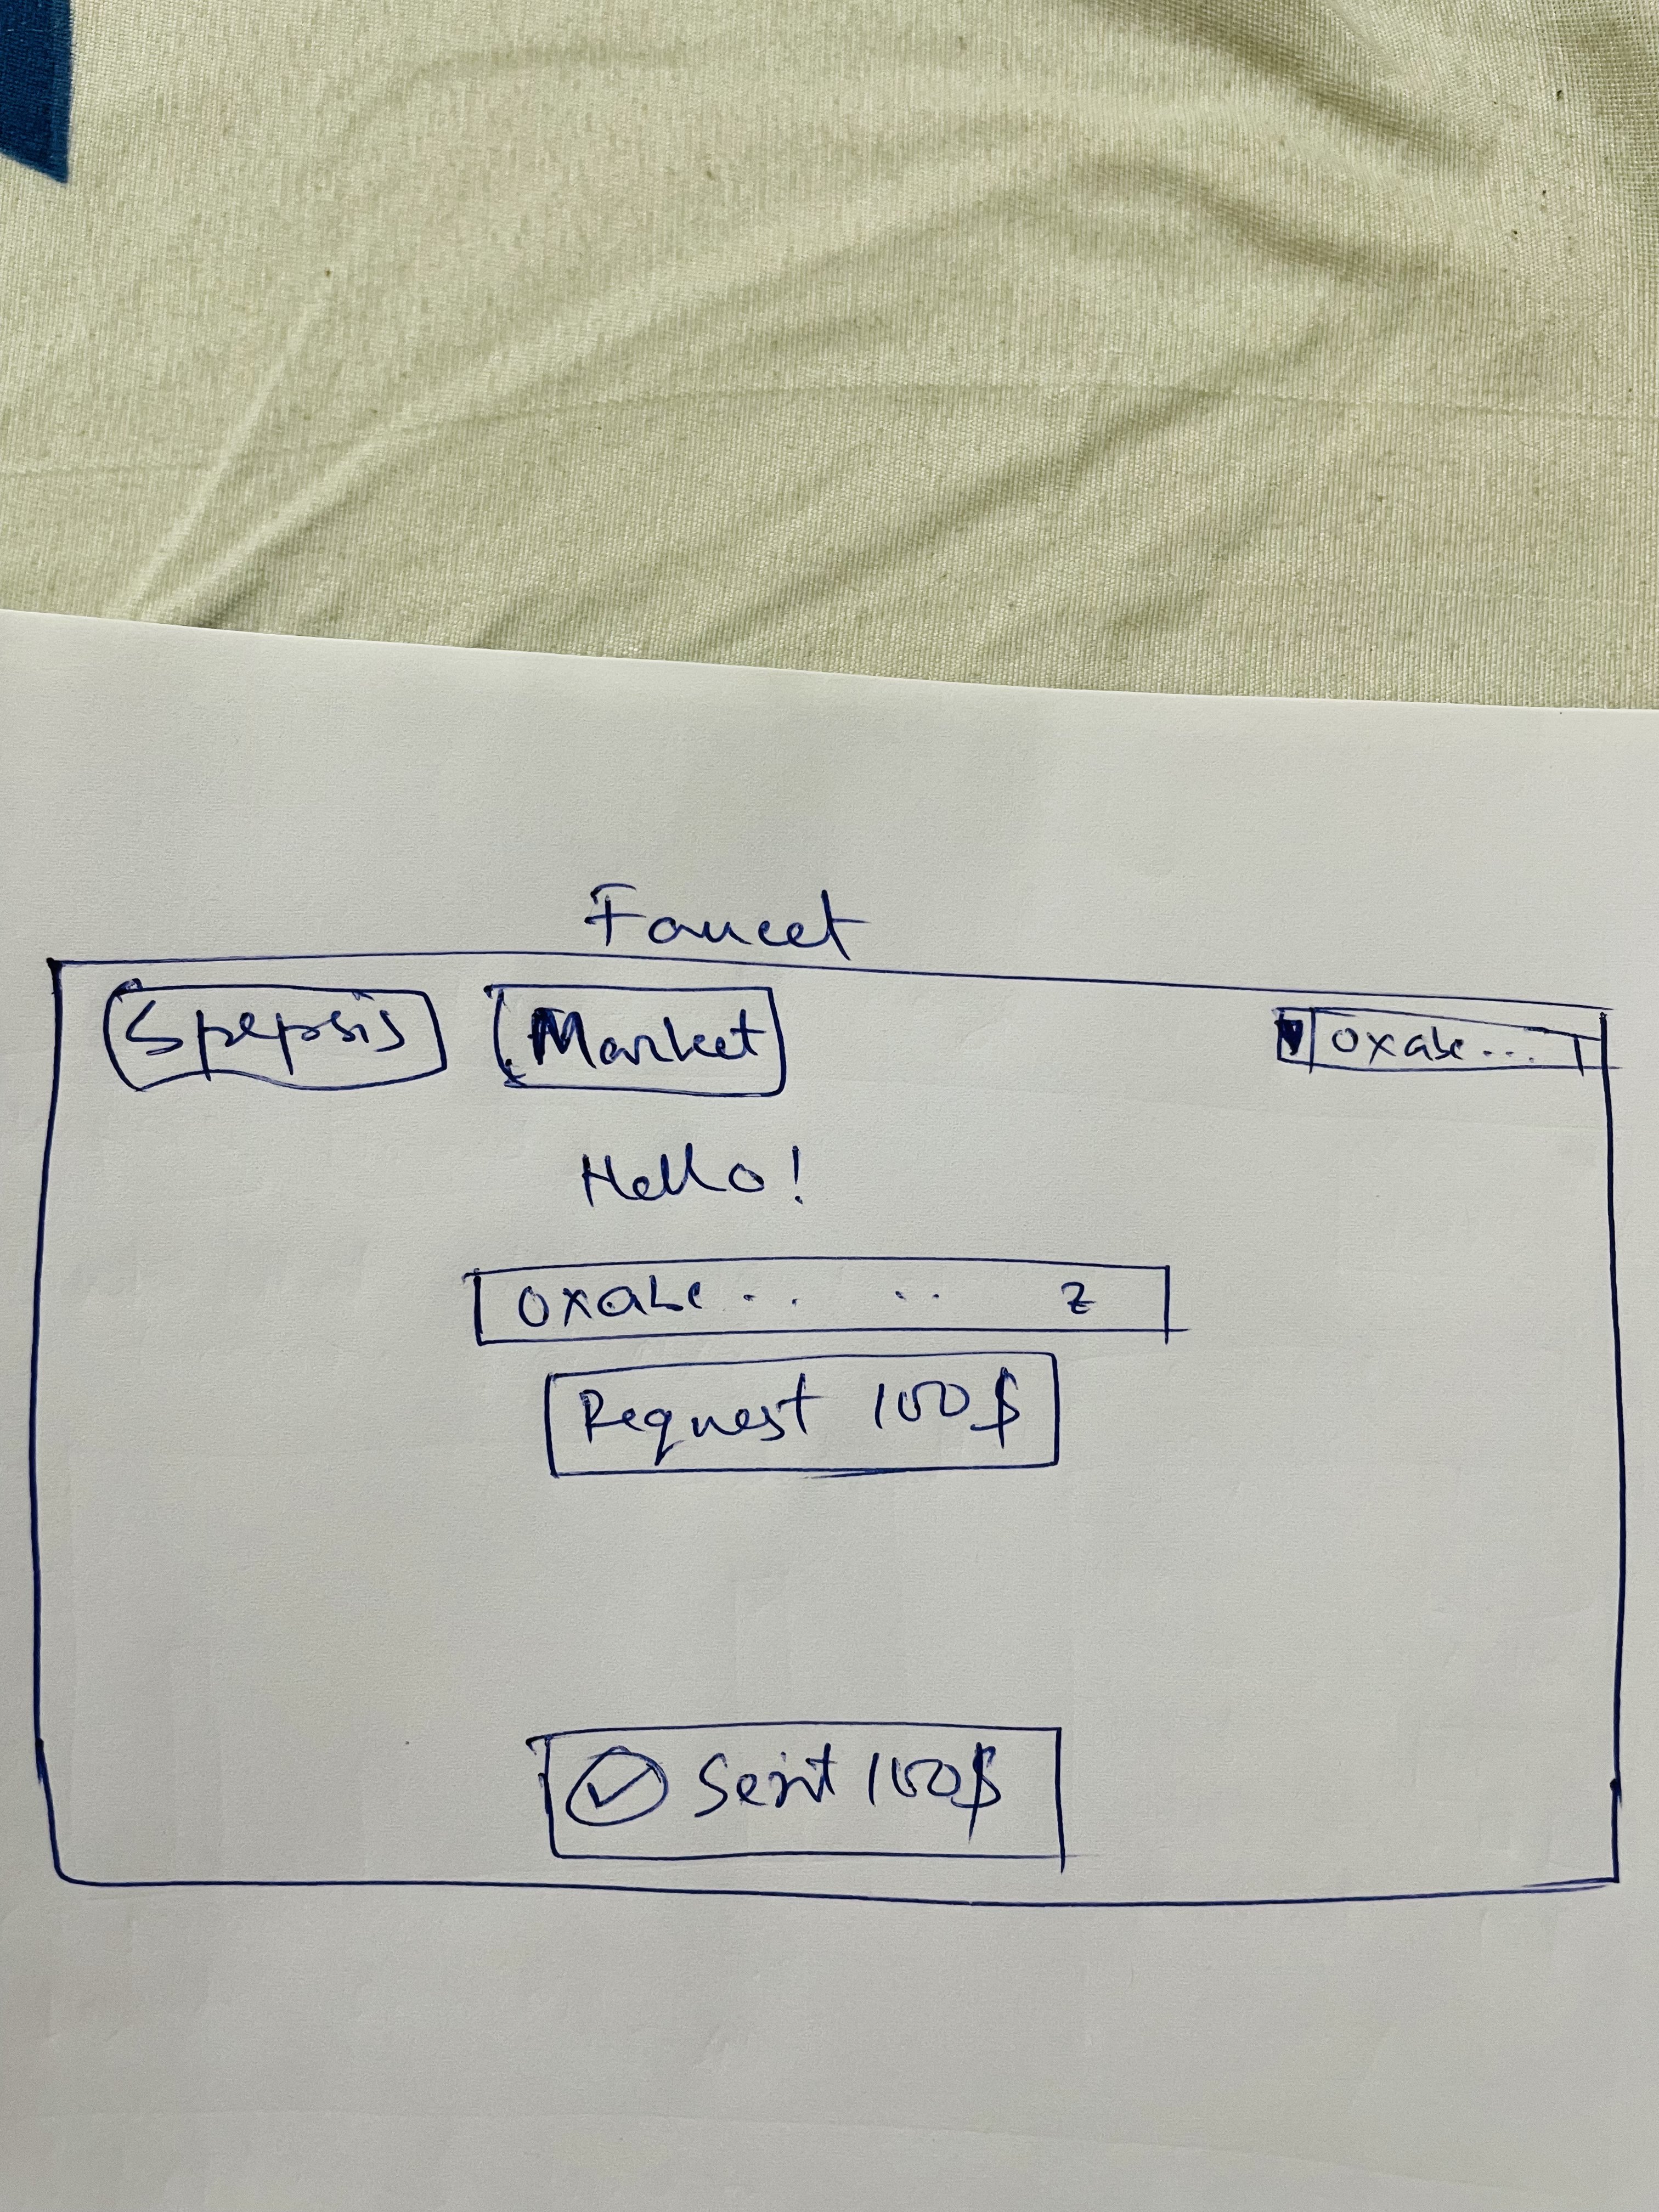 Faucet
Spepsis Market 0xabc...
Hello!
0xabc .. .. z
Request 100$
Sent 100$